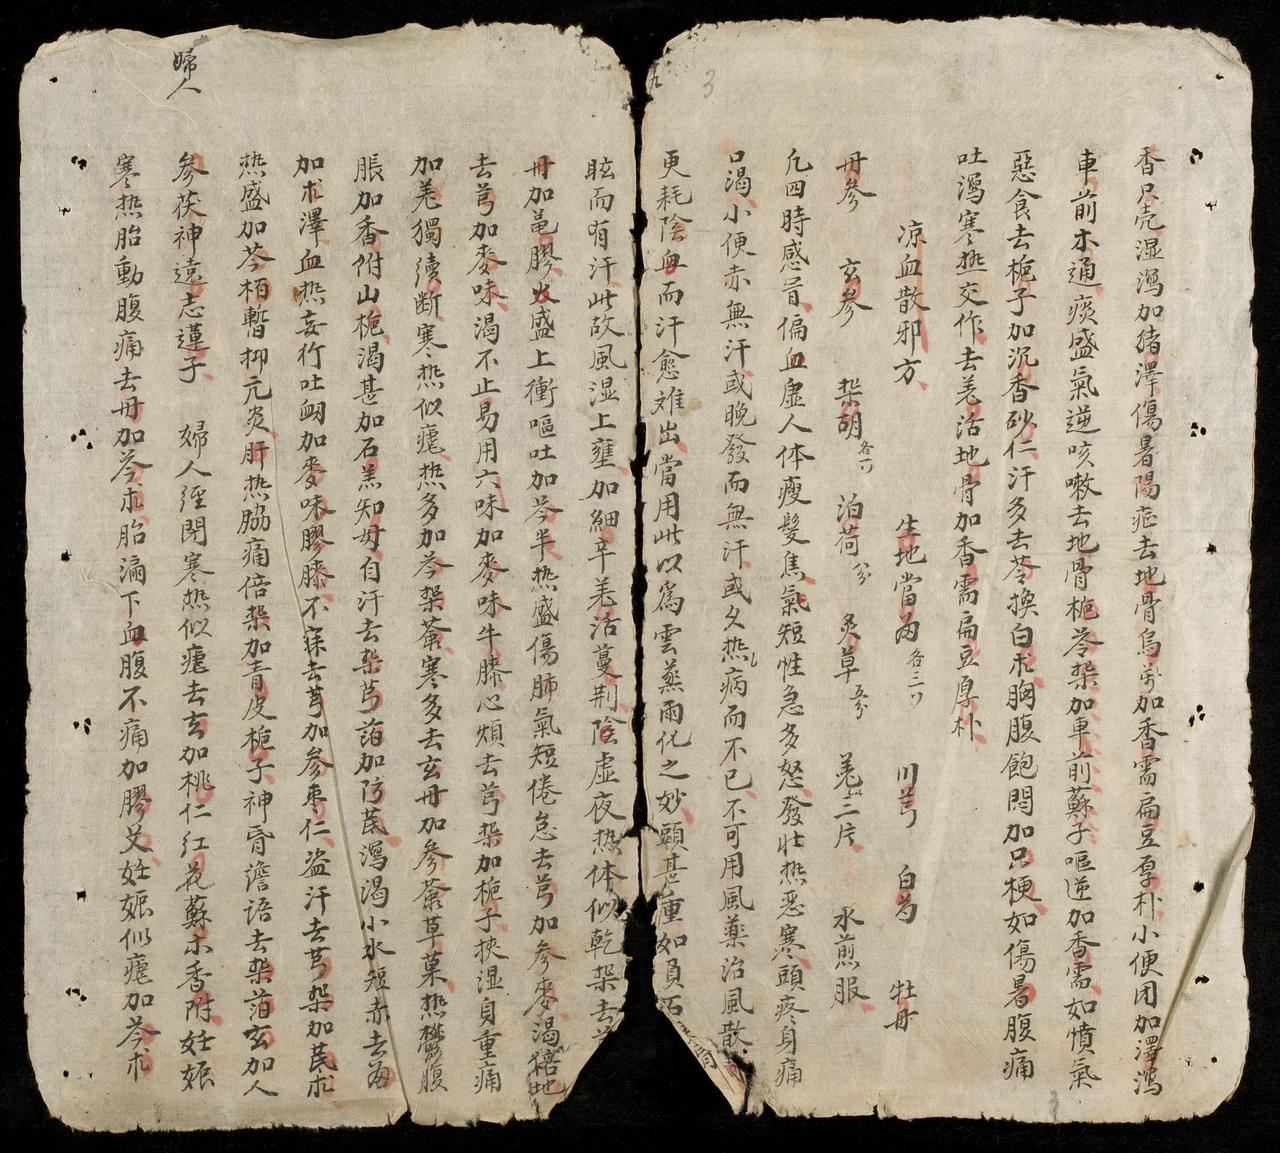 香只壳湿瀉加猪澤傷暑陽症去地骨烏药加香需扁豆厚朴小便閉加澤瀉
車前木通痰盛氣逆咳嗽去地骨梔苓柴加車前蘇子嘔逆加香需如憤氣
惡食去梔子加沉香砂仁汗多去苓換白朮胸腹飽悶加只梗如傷暑腹痛
吐瀉寒热交作去羌活地骨加香需扁豆厚朴
凉血散邪方 生地當歸各三 川芎 白芍 牡丹
丹參 玄參 柴胡 泊荷 炙草 羌二片 水煎服
凢四時感冒偏血虚人体瘦髮焦氣短性急多怒發壮热惡寒頭疼身痛
口渴小便赤無汗或晚發而無汗或久热病而不已不可用風薬治風散
更耗陰血而汗愈难出當用此以爲雲蒸雨化之妙頭甚重如負石
眩而有汗此故風湿上壅加細辛羌活蔓荆陰虚夜热体似乾柴去
丹加黽膠火盛上衝嘔吐加芩半热盛傷肺氣短倦怠去芎加参麥渴倍地
去芎加麥味渴不止易用六味加麥味牛膝心煩去芎柴加梔子挾湿身重痛
加羌獨續断寒热似瘧热多加芩柴蒿寒多去玄丹加參蒼草菓热鬱腹
脹加香附山梔渴甚加石羔知母自汗去柴芎泊加防芪瀉渴小水短赤去歸
加朮澤血热妄行吐衂加麥味膠膝不寐去芎加參枣仁盗汗去芎柴加芪朮
热盛加芩栢暫抑亢炎肝热脇痛倍柴加青皮梔子神昏譫语去柴泊玄加人
参茯神遠志蓮子 婦人經閉寒热似瘧去玄加桃仁红花蘇木香附妊娠
寒热胎動腹痛去丹加芩朮胎漏下血腹不痛加膠艾妊娠似瘧加芩朮
婦人
3